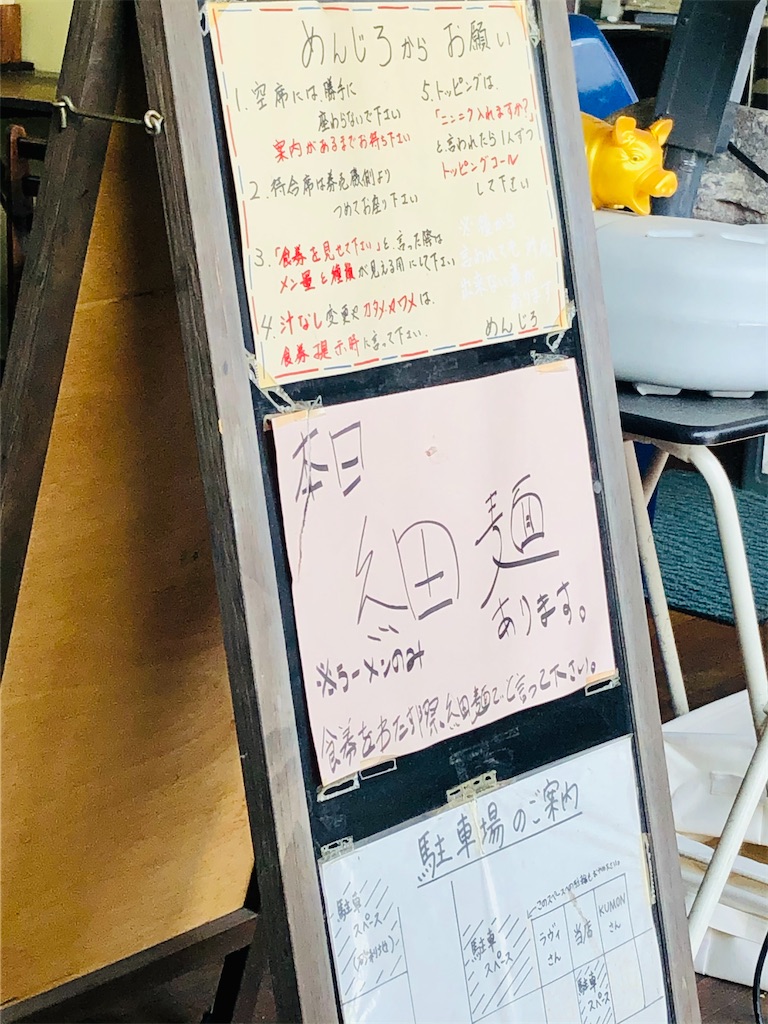 めんじろからお願い
1. 空席には、勝手に
座わらないで下さい
案内があるまでお待ち下さい
2. 待合席は券売機側より
つめてお座り下さい
3.「食券を見せて下さい」と言った際は
メン量と種類が見える用にして下さい
4. 汁なし変更やカタメ.ヤワメは、
食券提示時に言って下さい.
5.トッピングは、
「ニンニク入れますか?」
と、言われたら1人ずつ
トッピングコール
して下さい
めんじろ
本日
細麺
あります。
※ラーメンのみ
食券をわたす際、細麺で、と言って下さい。
駐車場のご案内
駐車
スペース
(砂利地)
駐車
スペース
ラヴィ
さん
当店
KUMON
さん
駐車
スペース